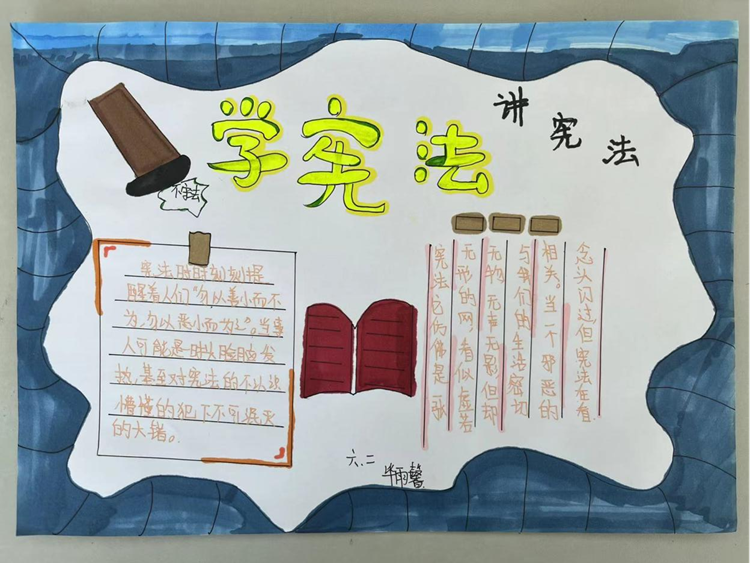 学宪法
讲宪法
宪法时时刻刻提
醒着人们“勿以善小而不
为,勿以恶小而为之”。当事
人可能是一时头脑发
热,甚至对宪法的不认识
懵懂的犯下不可泯灭
的大错。
宪法它仿佛是一张
无形的网 看似虚若
无物 无声无影 但却
与我们的生活密切
相关。当一个邪恶的
念头闪过但宪法在看
六.二